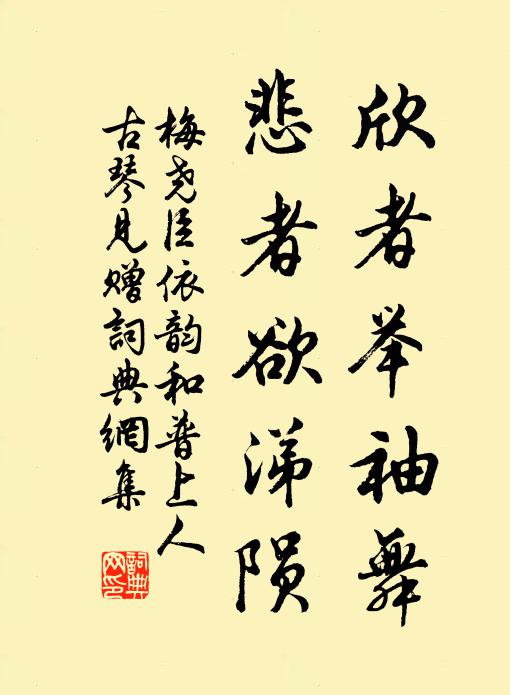 欣者举袖舞
悲者欲涕陨
梅尧臣依韵和普上人
古琴见赠詞典網集
詞典
网印